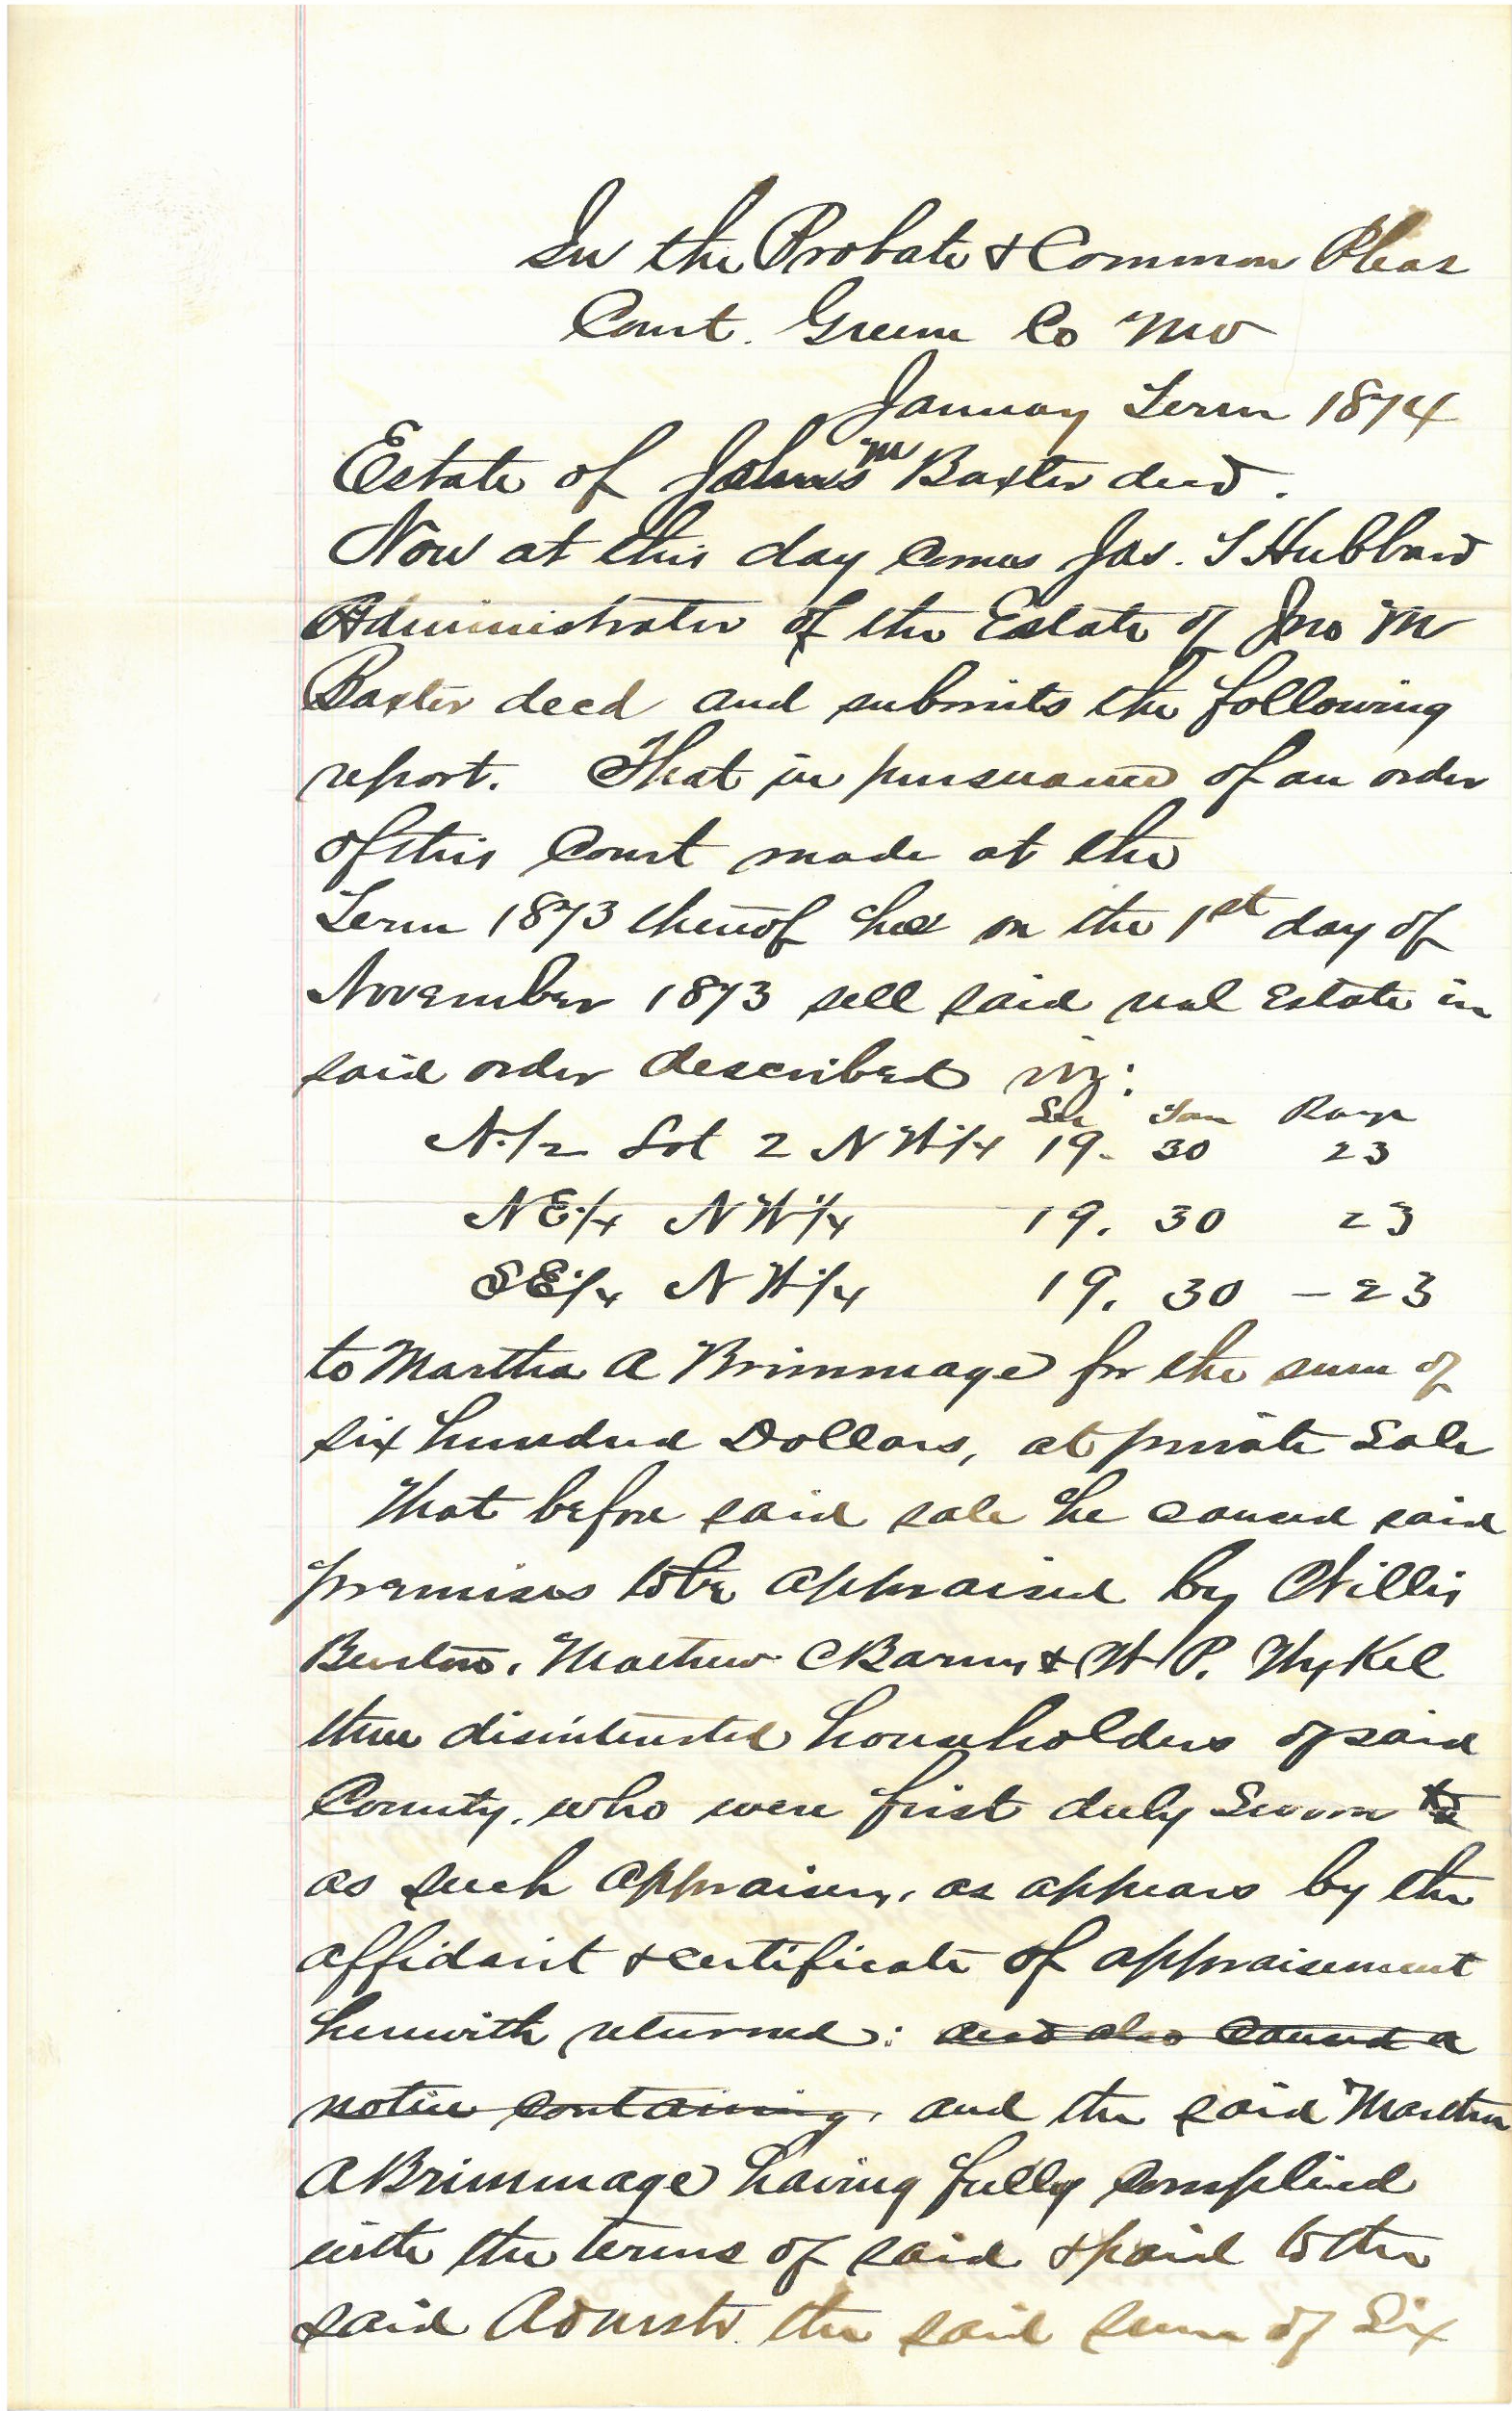 In the Probate & Common Pleas
Court. Greene Co Mo
January Term 1874
Estate of John M Baxter decd.
Now at this day comes Jas. T Hubbard
Administrator of the Estate of Jno M
Baxter decd and submits the following
report. That in pursuance of an order
of this Court made at the
Term 1873 thereof he on the 1st day of
November 1873 sell said real Estate in
said order described viz:
Sec Town Range
N 1/2 Lot 2 N W 1/4 19. 30 23
N E 1/4 N W 1/4 19. 30 23
S E 1/4 N W 1/4 19. 30 - 23
to Martha A Brimmage for the sum of
six hundred Dollars, at private Sale
That before said sale he caused said
premises to be appraised by Willis
Mathew C Barny & W P. Wykel
three disinterested householders of said
County, who were first duly Sworn
as such appraisers, as appears by the
affidavit & certificate of appraisement
herewith returned: and also caused a
notice containing, and the said Martha
A Brimmage having fully complied
with the terms of said & paid to the
said Admstr. the said sum of Six